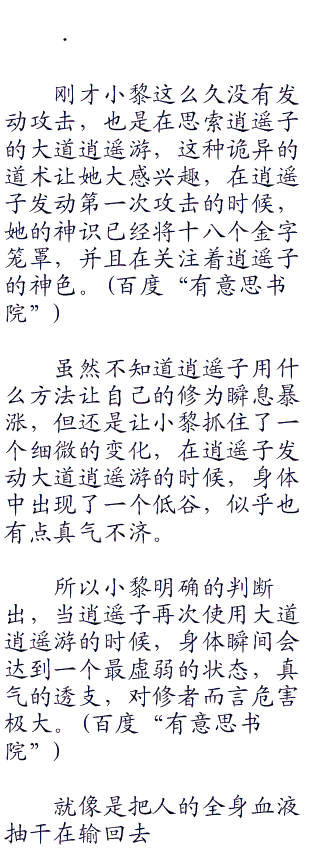 .
刚才小黎这么久没有发
动攻击，也是在思索逍遥子
的大道逍遥游，这种诡异的
道术让她大感兴趣，在逍遥
子发动第一次攻击的时候，
她的神识已经将十八个金字
笼罩，并且在关注着逍遥子
的神色。(百度“有意思书
院”)
虽然不知道逍遥子用什
么方法让自己的修为瞬息暴
涨，但还是让小黎抓住了一
个细微的变化，在逍遥子发
动大道逍遥游的时候，身体
中出现了一个低谷，似乎也
有点真气不济。
所以小黎明确的判断
出，当逍遥子再次使用大道
逍遥游的时候，身体瞬间会
达到一个最虚弱的状态，真
气的透支，对修者而言危害
极大。(百度“有意思书
院”)
就像是把人的全身血液
抽干在输回去